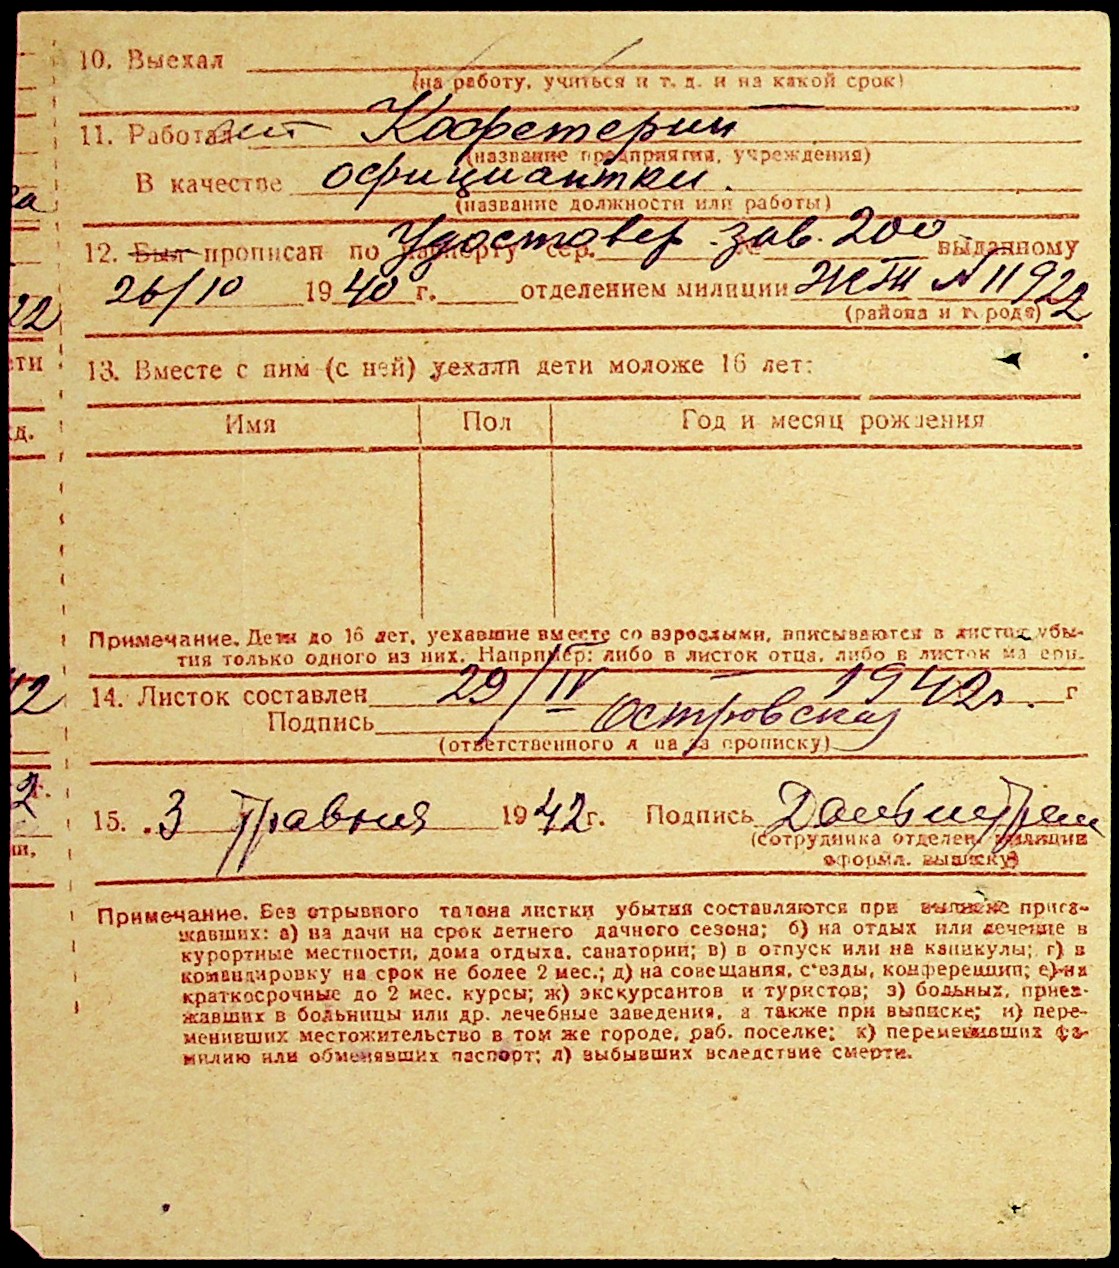 10. Выехал
(на работу, учиться и т. д. и на какой срок)
11. Работал Кафетерии
(название предприятия, учреждения)
В качестве официантки.
(название должности или работы)
12. Был прописан по паспорту сер. Удостовер. зав. 200 № выданному
26/10 1940 г. отделением милиции № 11922
(района и города)
13. Вместе с ним (с ней) уехали дети моложе 16 лет:
Имя Пол Год и месяц рождения
Примечание. Дети до 16 лет, уехавшие вместе со взрослыми, вписываются в листок убы-
тия только одного из них. Например: либо в листок отца, либо в листок матери.
14. Листок составлен 29/IV 1942г. г
Подпись Островская
(ответственного лица за прописку)
15. 3 травня 1942 г. Подпись
(сотрудника отделен. милиции
оформл. выписку)
Примечание. Без отрывного талона листки убытия составляются при выписке приез-
жавших: а) на дачи на срок летнего дачного сезона; б) на отдых или лечение в
курортные местности, дома отдыха, санатории; в) в отпуск или на каникулы; г) в
командировку на срок не более 2 мес.; д) на совещания, с'езды, конференции; е) на
краткосрочные до 2 мес. курсы; ж) экскурсантов и туристов; з) больных, приез-
жавших в больницы или др. лечебные заведения, а также при выписке; и) пере-
менивших местожительство в том же городе, раб. поселке; к) переменивших фа-
милию или обменявших паспорт; л) выбывших вследствие смерти.